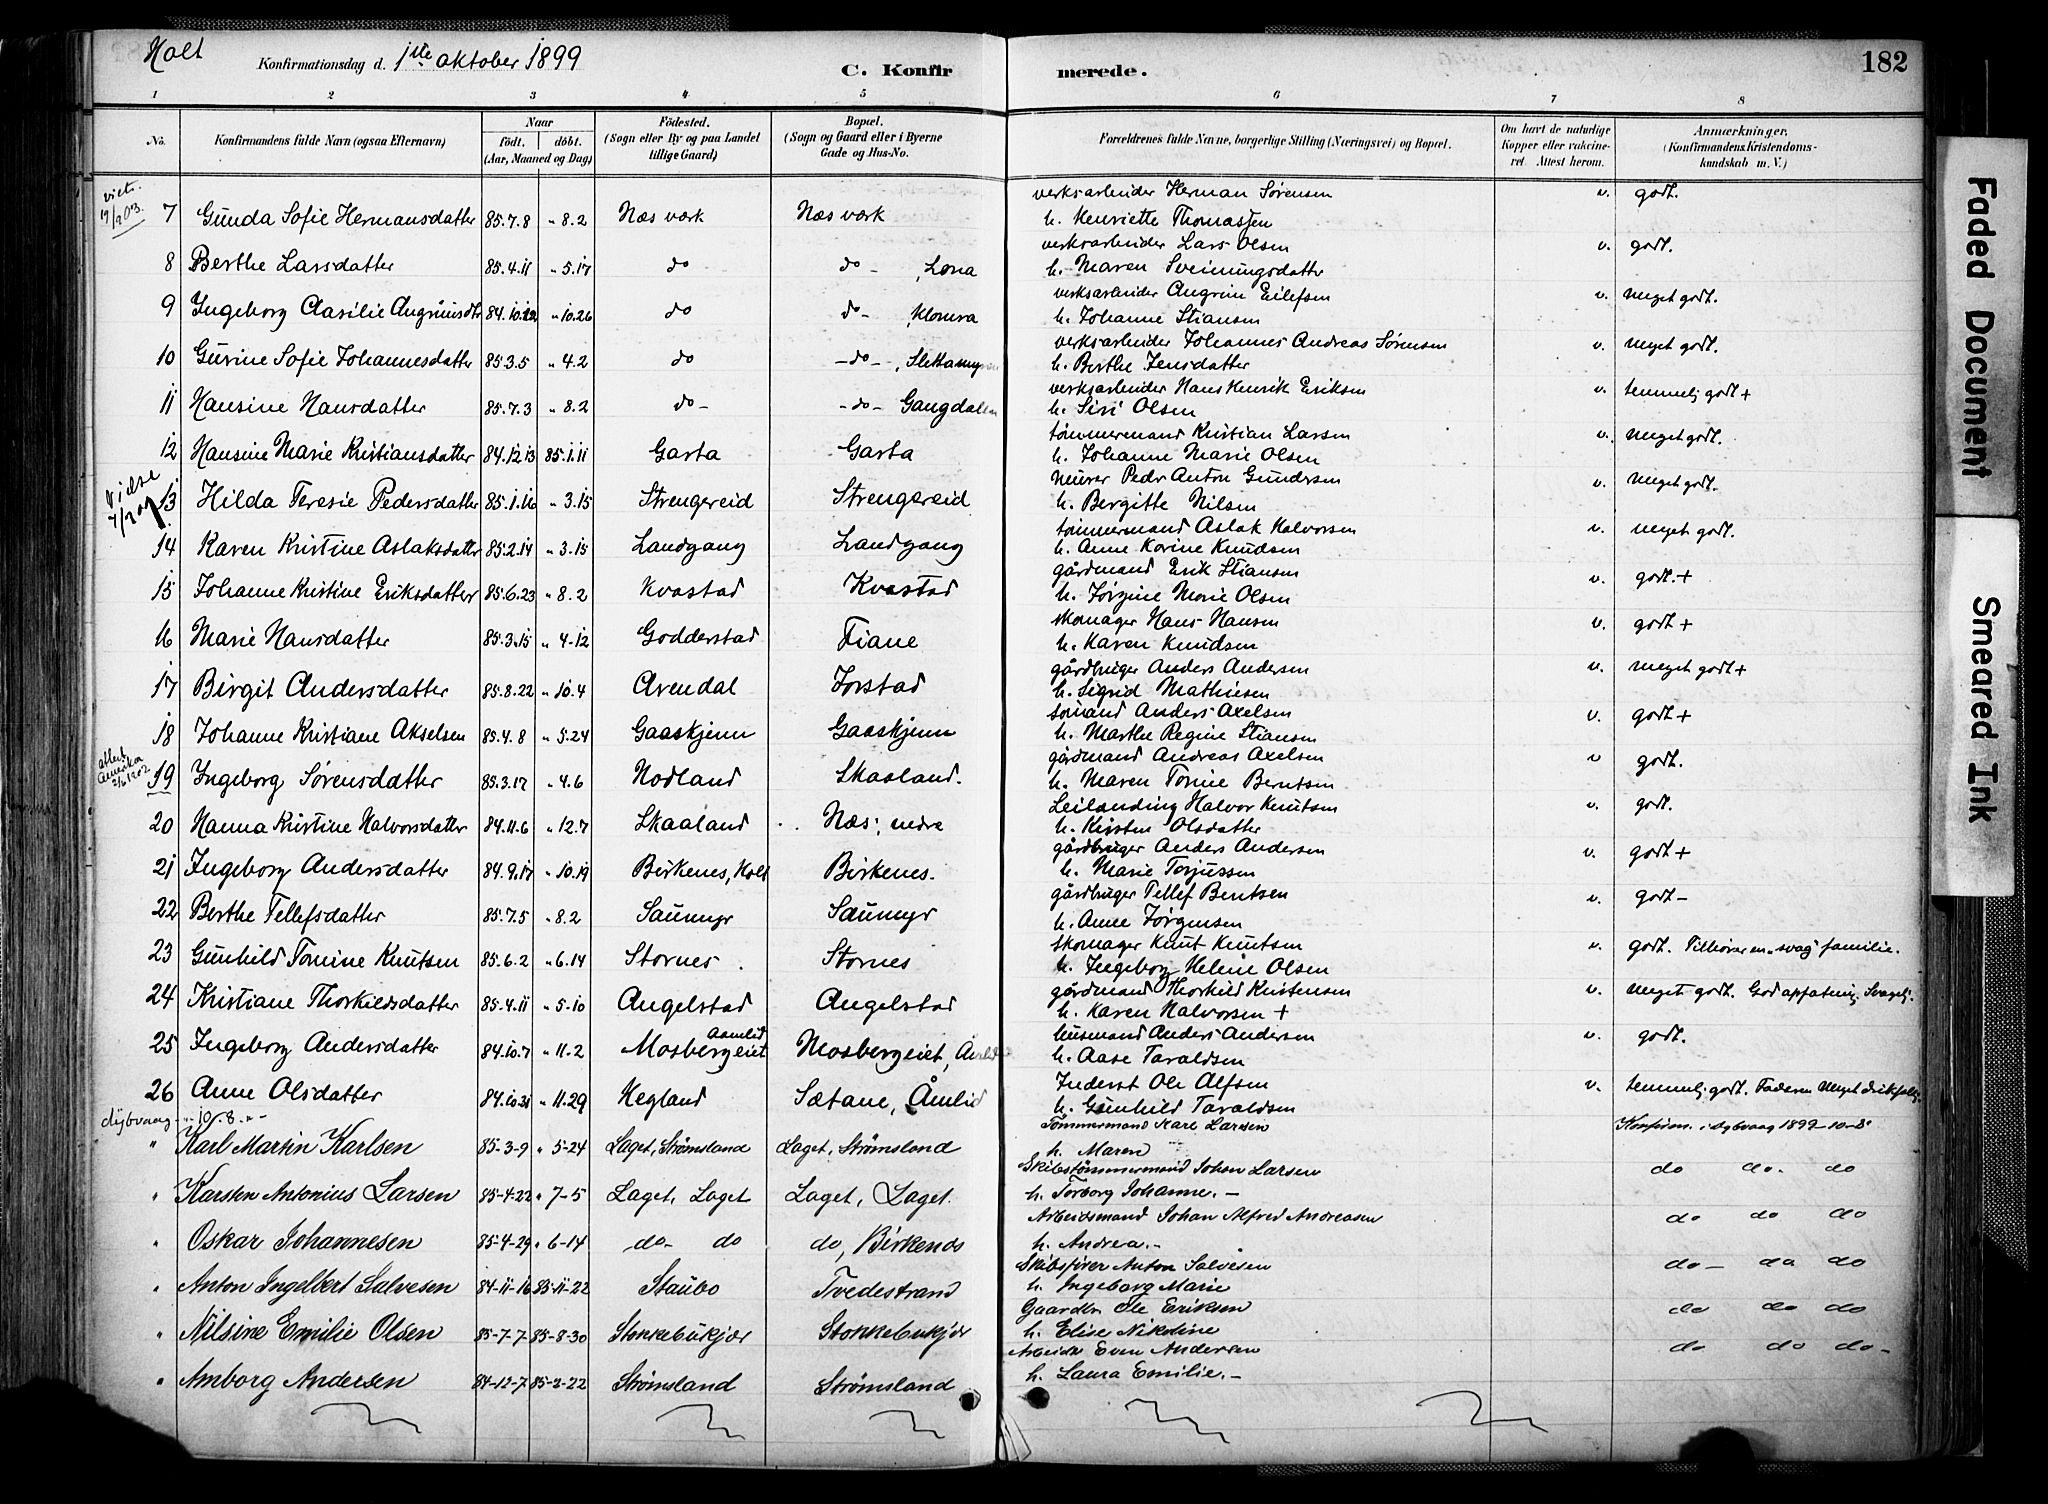 Holt Konfirmationsdag d. 1ste oktober 1899 C. Konfirmerede. 182
1 2 3 4 5 6 7 8
No. Konfirmandens fulde Navn (ogsaa Efternavn) Naar født. døbt. (Aar, Maaned og Dag) Fødested. (Sogn eller By og paa Landet tillige Gaard) Bopæl. (Sogn og Gaard eller i Byerne Gade og Hus-No. Forældrenes fulde Navne, borgerlige Stilling (Næringsvei) og Bopæl. Om havt de naturlige Kopper eller vakcineret. Attest herom. Anmærkninger. (Konfirmandens Kristendomskundskab m. V.)
verksarbeider Herman Sørensen v. godt.
7 Gunda Sofie Hermansdatter 85.7.8 " 8.2 Næs værk Næs værk h. Henriette Thomassen
verksarbeider Lars Olsen v. godt.
8 Berthe Larsdatter 85.4.11 " 5.17 do do - Lona h. Maren Sveinungsdatter
verksarbeider Angrim Eilefsen v. meget godt.
9 Ingeborg Clasilie 84.10.12 " 10.26 do do - h. Johanne Stiansen
verksarbeider Johannes Andreas Sørensen v. meget godt.
10 Gurine Sofie Johannesdatter 85.3.5 " 4.2 do - do - h. Berthe Jensdatter
verksarbeider Hans Henrik Eriksen v. temmeli godt +
11 Hansine Hansdatter 85.7.3 " 8.2 do - - do - Gangdalen h. Siri Olsen
tømmermand Kristian Larsen v. meget godt.
12 Hansine Marie Kristiansdatter 84.12.13 85.1.11 Garta Garta h. Johanne Marie Olsen
murer Peder Anton Gundersen v. meget godt.
13 Hilda Teresie Pedersdatter 85.1.16 " 3.15 Strengereid Strengereid h. Bergitte Nilsen
tømmermand Aslak Halvorsen v. meget godt.
14 Karen Kristine Aslaksdatter 85.2.14 " 3.15 Landgang Landgang h. Anne Karine Knudsen
gårdmand Erik Stiansen v. godt. +
15 Johanne Kristine Eriksdatter 85.6.23 " 8.2 Kvastad Kvastad h. Jørgine Marie Olsen
skomager Hans Hansen v. godt +
16 Marie Hansdatter 85.3.15 " 4.12 Godderstad Fiane h. Karen Knudsen
gårdbruger Anders Andersen v. meget godt +
17 Birgit Andersdatter 85.8.22 " 10.4 Arendal Jorstad h. Sigrid Mathiesen
sømand Anders Axelsen v. godt +
18 Johanne Kristiane Akselsen 85.4.8 " 5.24 Gaaskjenn Gaaskjenn h. Marthe Regine Stiansen
gårdmand Andreas Axelsen v godt.
19 Ingeborg Sørensdatter 85.3.17 " 4.6 Nodland Skaaland. h. Maren Tomine Berntsen
Leilænding Halvor Knutsen v. godt.
20 Hanna Kristine Halvorsdatter 84.11.6 " 12.7 Skaaland Næs, nedre h. Kirsten Olsdatter
gårdbruger Anders Andersen v. godt +
21 Ingeborg Andersdatter 84.9.17 " 10.19 Birkenes, Holt Birkenes. h. Marie Torjussen
gårdbruger Tellef Bentsen v. godt -
22 Berthe Tellefsdatter 85.7.5 " 8.2 Saumyr Saumyr h. Anne Jørgensen
skomager Knut Knutsen v. godt. Tilhører en "svag" familie.
23 Gunhild Tomine Knutsen 85.6.2 " 6.14 Stornes Stornes h. Ingeborg Helene Olsen
gårdmand Thorkild Kristensen v. meget godt. God opfatning. Svagelig.
24 Kristiane Thorkildsdatter 85.4.11 " 5.10 Angelstad Angelstad h. Karen Halvorsen +
husmand Anders Andersen v. godt.
25 Ingeborg Andersdatter 84.10.7 " 11.2 Mosbergeiet Aamlid Mosbergeiet, h. Aase Taraldsen
Inderst Ole Alfsen v. temmeli godt. Faderen meget
26 Anne Olsdatter 84.10.31 " 11.29 Hegland Sætane, Åmlid h. Gunhild Taraldsen
dybvaag " 10.8. "
Tømmermand Karl Larsen Konfirm. i dybvaag 1899-10-8
" Karl Martin Karlsen 85-3-9 " 5-24 Laget, Strømsland Laget, Strømsland h. Maren
Skibstømmermand Johan Larsen do do. do
" Karsten Antonius Larsen 85-4-22 " 7-5 Laget, Laget Laget, Laget. h. Torborg Johanne. -
Arbeidsmand Johan Alfred Andreasen do do do
" Oskar Johannesen 85-4-29 " 6-14 do- do do, Birkenes h. Andrea. -
Skibsfører Anton Salvesen do - do do
" Anton Ingelbert Salvesen 84-11-16 85-11-22 Staubo Tvedestrand h. Ingeborg Marie
Gaardbr. Ole Eriksen do do do
" Nilsine Emilie Olsen 85-7-7 85-8-30 Stokkebukjær Stokkebukjær h. Elise Nikoline
Arbeidr Even Andersen do do do -
" Amborg Andersen 84-12-7 85-2-22 Strømsland Strømsland h. Laura Emilie. -
Faded Document
Smeared Ink